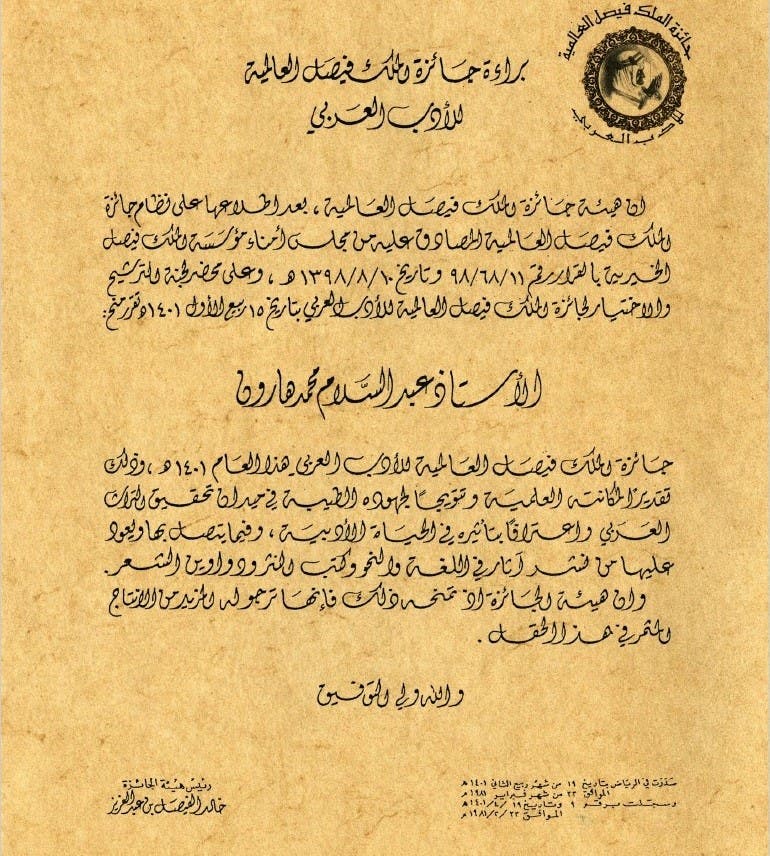 جائزة الملك فيصل العالمية
للأدب العربي
براءة جائزة الملك فيصل العالمية
للأدب العربي
ان هيئة جائزة الملك فيصل العالمية ، بعد اطلاعها على نظام جائزة
الملك فيصل العالمية المصادق عليه من مجلس أمناء مؤسسة الملك فيصل
الخيرية بالقرار رقم ٩٨/٦٨/١١ وتاريخ ١٣٩٨/٨/١٠ هـ ، وعلى محضر لجنة الترشيح
والاختيار لجائزة الملك فيصل العالمية للأدب العربي بتاريخ ١٥ ربيع الأول ١٤٠١هـ تقرر منح :
الأستاذ عبد السَّلام محمد هارون
جائزة الملك فيصل العالمية للأدب العربي هذا العام ١٤٠١ هـ ، وذلك
تقديرًا لمكانته العلمية وتتويجًا لجهوده الطيبة في ميدان تحقيق التراث
العربي واعترافًا بتأثيره في الحياة الأدبية ، وفيما يتصل بها ويعود
عليها من نشر آثار في اللغة والنحو وكتب النثر ودواوين الشعر .
وان هيئة الجائزة اذ تمنحه ذلك فإنها ترجو له المزيد من الانتاج
المثمر في هذا الحقل .
والله ولي التوفيق
صدرت في الرياض بتاريخ ١٩ من شهر ربيع الثاني ١٤٠١ هـ
الموافق ٢٣ من شهر فبراير ١٩٨١ م
وسجلت برقم ٩ وتاريخ ١٩ /٤/ ١٤٠١ هـ
الموافق ٢٣ /٢/ ١٩٨١ م
رئيس هيئة الجائزة
خالد الفيصل بن عبد العزيز